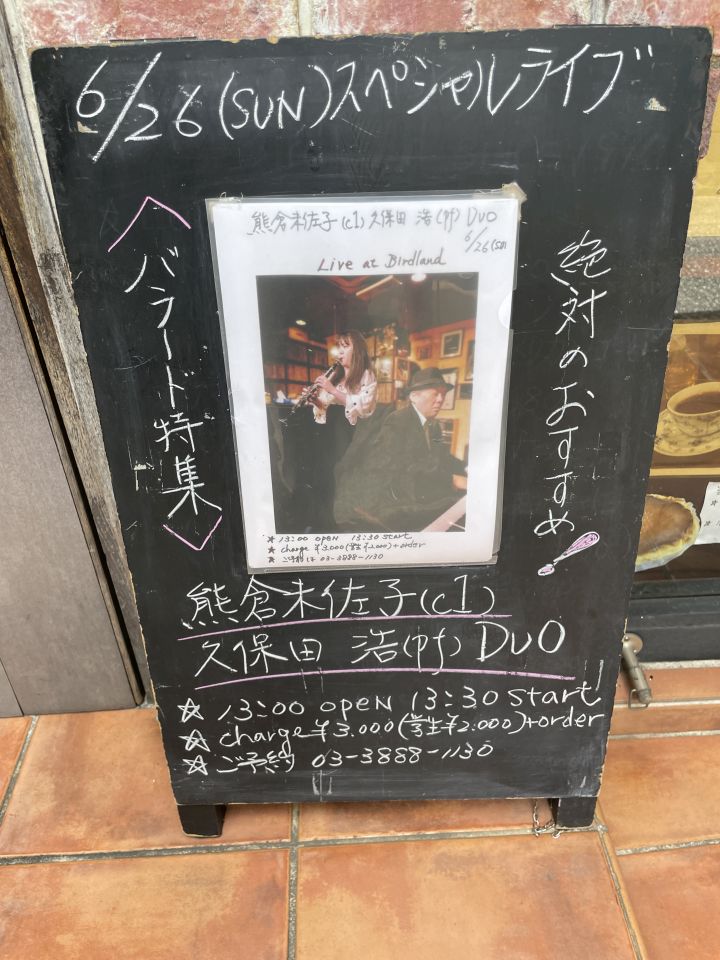 6/26(SUN)スペシャルライブ
<バラード特集>
絶対のおすすめ!
熊倉未佐子(cl)久保田 浩(pf) DUO
6/26(SUN
Live at Birdland
☆ 13:00 open 13:30 start
☆ charge ¥3.000(学生¥2.000)+order
☆ ご予約は 03-3888-1130
熊倉未佐子(cl)
久保田 浩(pf) DUO
☆ 13:00 open 13:30 start
☆ charge ¥3.000(学生¥2.000)+order
☆ ご予約 03-3888-1130